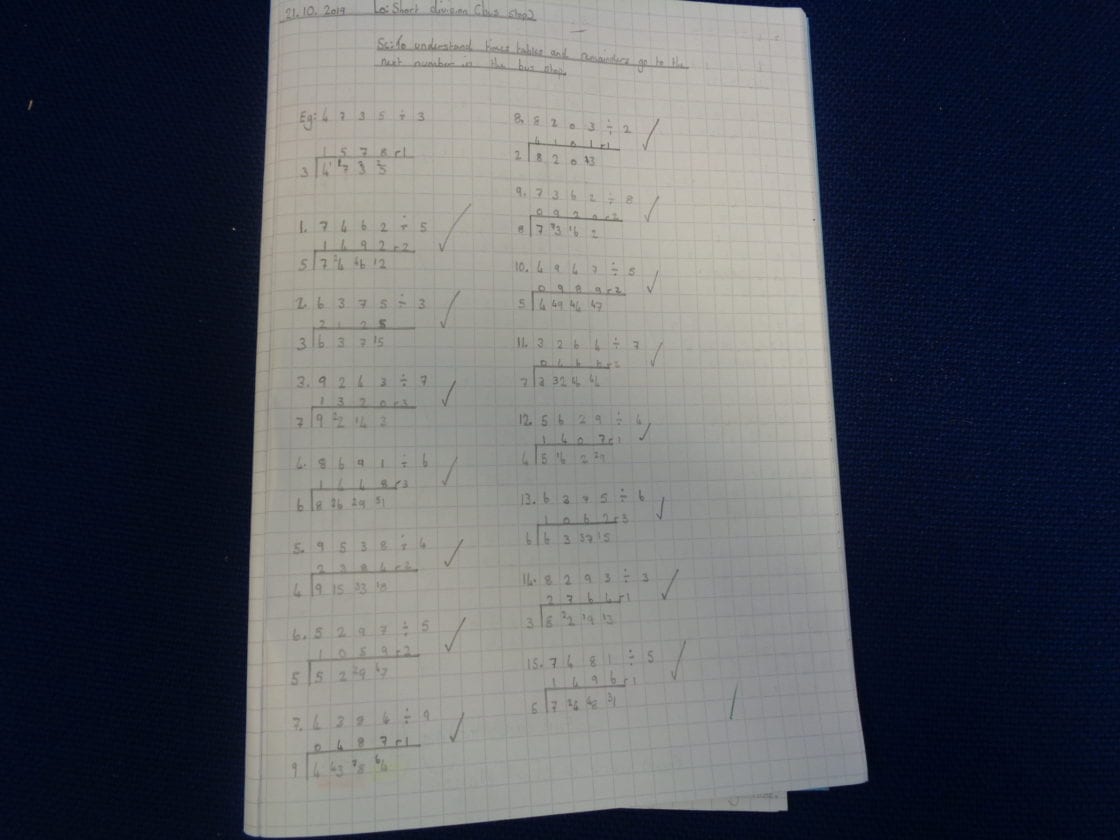 21.10.2019 Lo: Short division (bus stop)
Sc: to understand times tables and remainders go to the
next number in the bus stop.
Eg: 4 7 3 5 ÷ 3
1 5 7 8 r1
3 4 ¹7 ²3 ²5
1. 7 4 6 2 ÷ 5
1 4 9 2 r2
5 7 ²4 ⁴6 ¹2
2. 6 3 7 5 ÷ 3
2 1 2 5
3 6 3 7 ¹5
3. 9 2 4 3 ÷ 7
1 3 2 0 r3
7 9 ²2 ¹4 3
4. 8 6 9 1 ÷ 6
1 4 4 8 r3
6 8 ²6 ²9 ⁵1
5. 9 5 3 8 ÷ 4
2 3 8 4 r2
4 9 ¹5 ³3 ¹8
6. 5 2 9 7 ÷ 5
1 0 5 9 r2
5 5 2 ²9 ⁴7
7. 4 3 8 4 ÷ 9
0 4 8 7 r1
9 4 ⁴3 ⁷8 ⁶4
8. 8 2 0 3 ÷ 2
4 1 0 1 r1
2 8 2 0 3
9. 7 3 6 2 ÷ 8
0 9 2 0 r2
8 7 ⁷3 ¹6 2
10. 4 9 4 7 ÷ 5
0 9 8 9 r2
5 4 ⁴9 ⁴4 ⁴7
11. 3 2 6 4 ÷ 7
0 4 6 6 r2
7 3 ³2 ⁴6 ⁴4
12. 5 6 2 9 ÷ 4
1 4 0 7 r1
4 5 ¹6 2 ²9
13. 6 3 7 5 ÷ 6
1 0 6 2 r3
6 6 3 ³7 ¹5
14. 8 2 9 3 ÷ 3
2 7 6 4 r1
3 8 ²2 ¹9 ¹3
15. 7 4 8 1 ÷ 5
1 4 9 6 r1
5 7 ²4 ⁴8 ³1